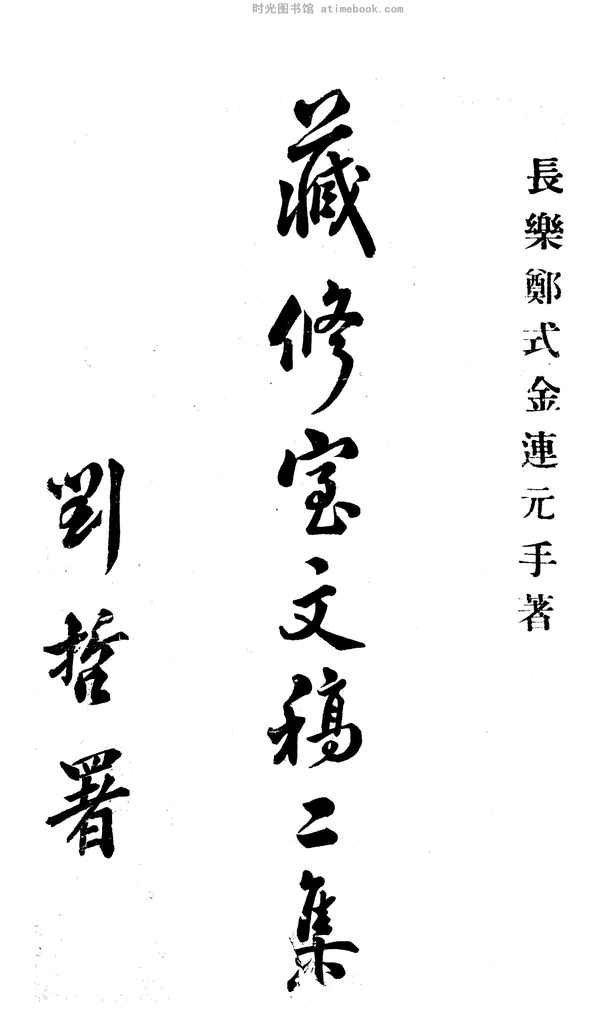 时光图书馆 atimebook.com
長樂鄭式金連元手著
藏修室文稿二集
劉哲署